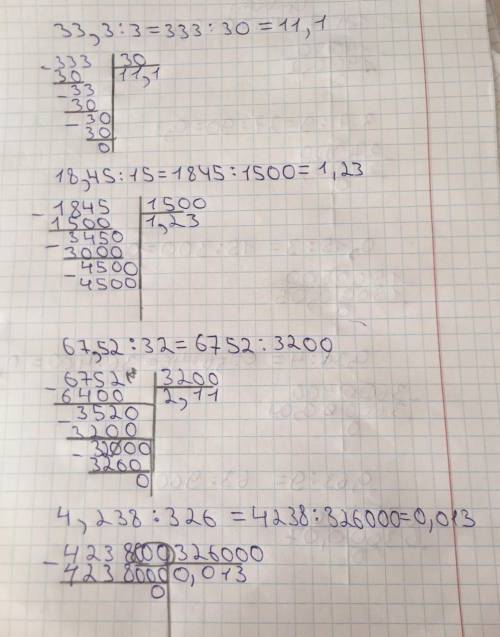 33,3:3=333:30=11,1
-333 30
30 11,1
-33
30
-30
30
0
18,45:15=1845:1500=1,23
-1845 1500
1500 1,23
-3450
3000
-4500
4500
67,52:32=6752:3200
-6752 3200
6400 2,11
-3520
3200
-3200
3200
0
4,238:326=4238:326000=0,013
-4238000 326000
4238000 0,013
0